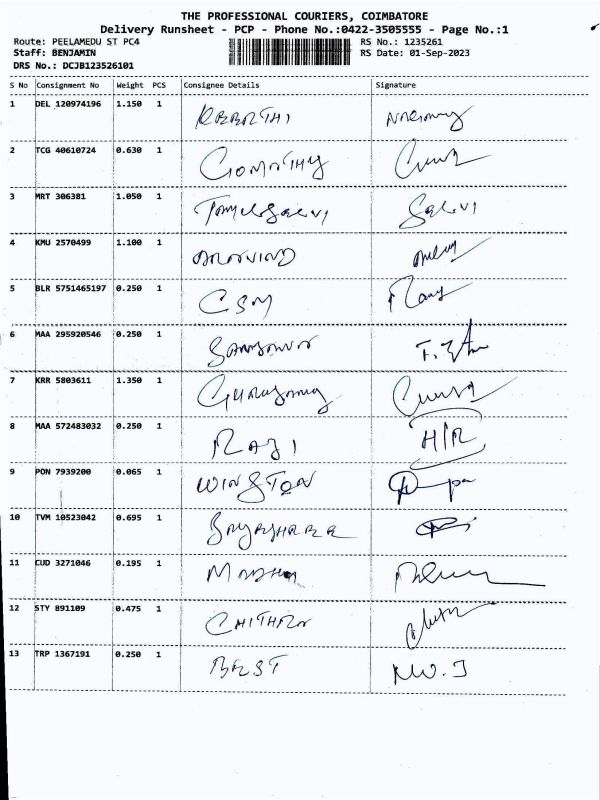 THE PROFESSIONAL COURIERS, COIMBATORE
Delivery Runsheet - PCP - Phone No.:0422-3505555 - Page No.:1
Route: PEELAMEDU ST PC4 RS No.: 1235261
Staff: BENJAMIN RS Date: 01-Sep-2023
DRS No.: DCJB123526101
S No Consignment No Weight PCS Consignee Details Signature
1 DEL 120974196 1.150 1
2 TCG 40610724 0.630 1 GOMATHY
3 MRT 306381 1.050 1 Selvi
4 KMU 2570499 1.100 1 ARAVIND
5 BLR 5751465197 0.250 1 CSM
6 MAA 295920546 0.250 1
7 KRR 5803611 1.350 1 Gurusamy
8 MAA 572483032 0.250 1 RAJI H/R
9 PON 7939200 0.065 1 WINSTON
10 TVM 10523042 0.695 1
11 CUD 3271046 0.195 1 MADHU
12 STY 891109 0.475 1 CHITHRA
13 TRP 1367191 0.250 1 BEST